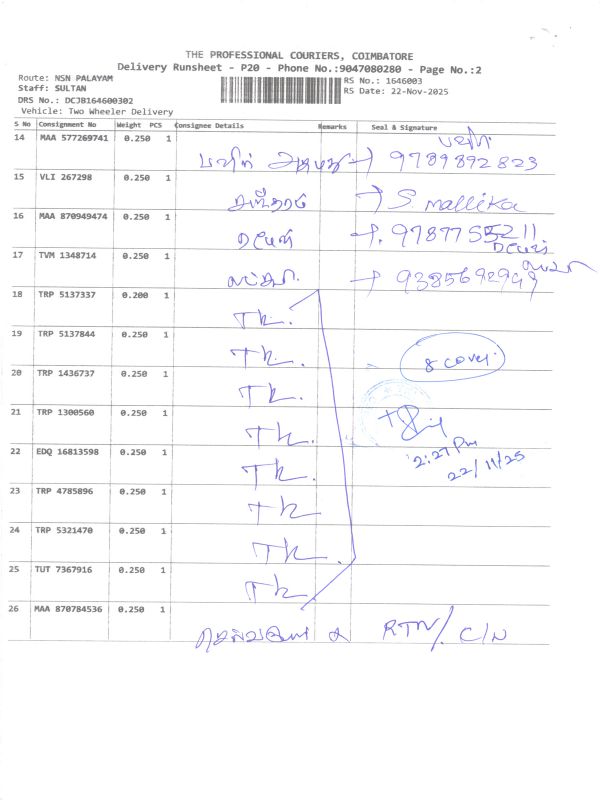 THE PROFESSIONAL COURIERS, COIMBATORE
Delivery Runsheet - P20 - Phone No.:9047080280 - Page No.:2
Route: NSN PALAYAM
RS No.: 1646003
Staff: SULTAN
RS Date: 22-Nov-2025
DRS No.: DCJB164600302
Vehicle: Two Wheeler Delivery
S No Consignment No Weight PCS Consignee Details Remarks Seal & Signature
14 MAA 577269741 0.250 1 9789892823
15 VLI 267298 0.250 1 S mallika
16 MAA 870949474 0.250 1
17 TVM 1348714 0.250 1
18 TRP 5137337 0.200 1 TK.
19 TRP 5137844 0.250 1 TK.
8 cover.
20 TRP 1436737 0.250 1 TK.
21 TRP 1300560 0.250 1 TK.
2:27 Pm
22/11/25
22 EDQ 16813598 0.250 1 TK.
23 TRP 4785896 0.250 1 TK
24 TRP 5321470 0.250 1 TK.
25 TUT 7367916 0.250 1 TK.
26 MAA 870784536 0.250 1 RTN/ C/N